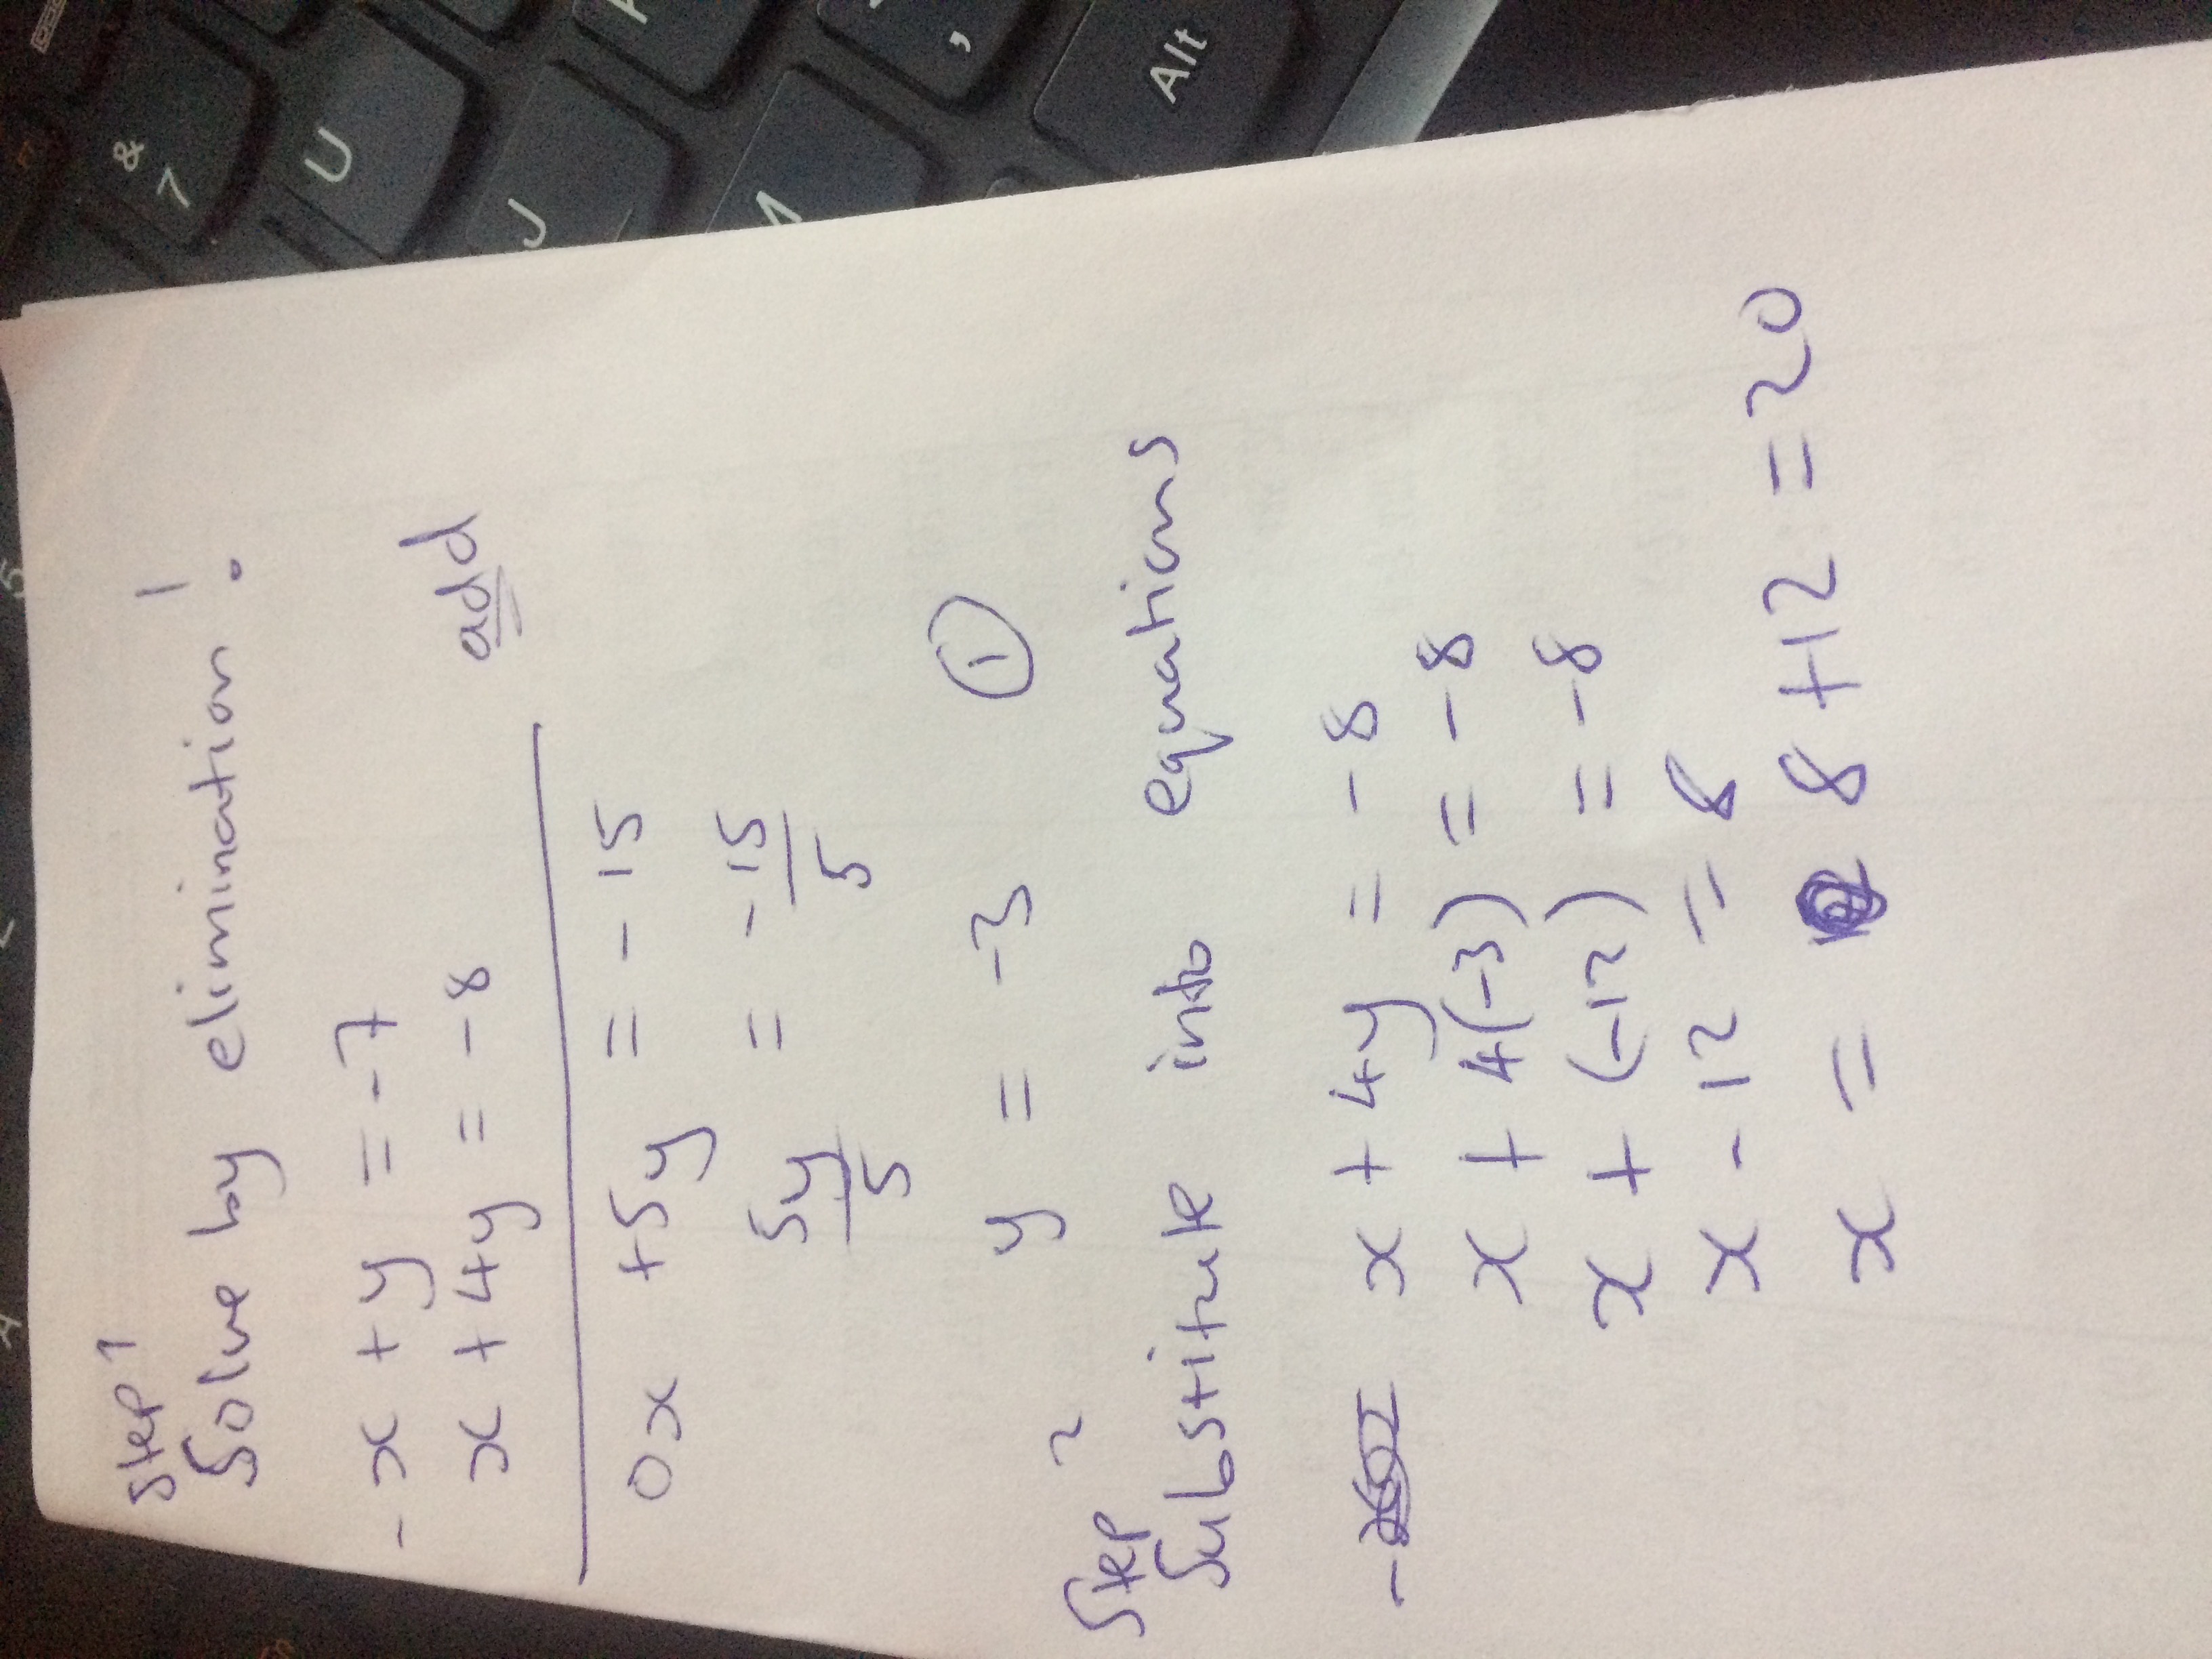 Step 1
Solve by elimination !
- x + y = -7
x + 4y = -8 add
0x +5y = - 15
5y/5 = - 15/5
y = -3 ①
Step 2
Substitute into equations
- x + 4y = -8
x + 4(-3) = -8
x + (-12) = -8
x - 12 = 8
x = 8 +12 = 20
& 7
U
J
,
Alt